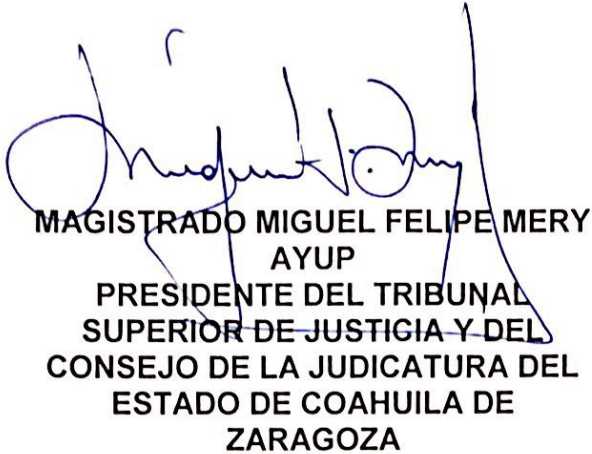 MAGISTRADO MIGUEL FELIPE MERY
AYUP
PRESIDENTE DEL TRIBUNAL
SUPERIOR DE JUSTICIA Y DEL
CONSEJO DE LA JUDICATURA DEL
ESTADO DE COAHUILA DE
ZARAGOZA